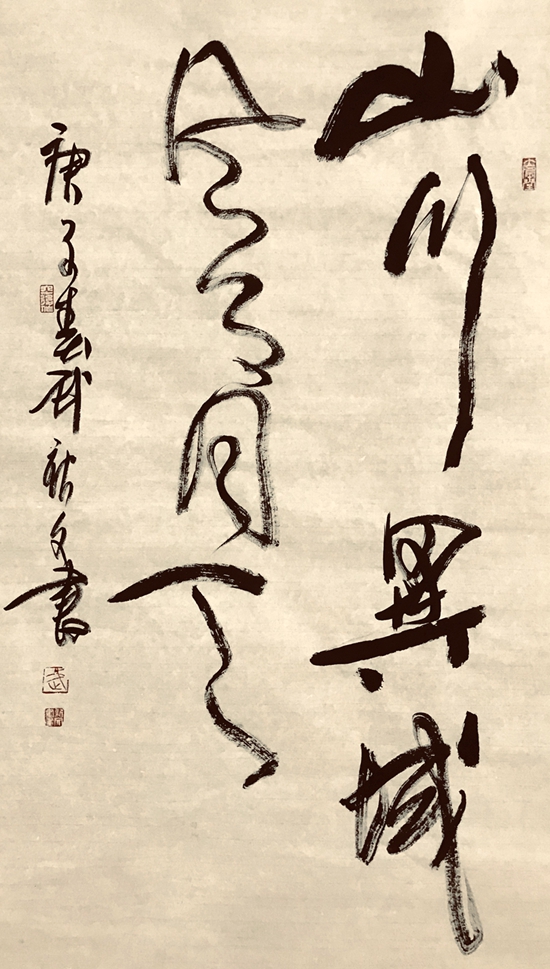 山川異域
風月同天
庚子春武文書